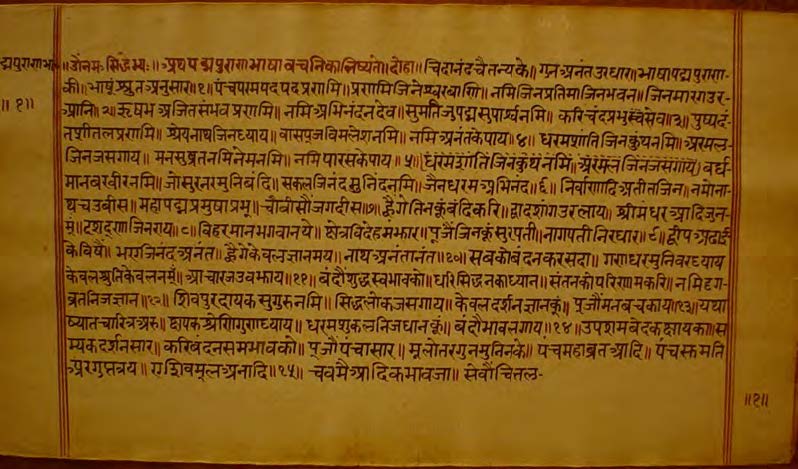 द्मपुराणभा॰ ॥ओंनमःसिद्धेभ्यः॥अथपद्मपुराणभाषावचनिकालिष्यंते॥दोहा॥चिदानंदचैतन्यके॥गुनअनंतउरधार॥भाषापद्मपुराण
की॥भाषूंश्रुतअनुसार॥१॥पंचपरमपदपदप्रणमि॥प्रणमिजिनेश्वरबाणि॥नमिजिनप्रतिमाजिनभवन॥जिनमारगउर-
॥१॥ आनि॥२॥ऋषभअजितसंभवप्रणमि॥नमिअभिनंदनदेव॥सुमतिजुपद्मसुपार्श्वनमि॥करिचंदप्रभुसेव॥३॥पुष्पदं-
तशीतलप्रणमि॥श्रेयनाथजिनध्याय॥वासपूजविमलेशनमि॥नमिअनंतकेपाय॥४॥धरमशांतिजिनकुंथनमि॥अरमल-
जिनजसगाय॥मनसुब्रतनमिनेमनमि॥नमिपारसकेपाय॥५॥ वर्ध
मानबरबीरनमि॥जोसुरनरमुनिबंदि॥सकलजिनंदमुनिंदनमि॥जैनधरमअभिनंद॥६॥निर्वाणादिअतीतजिन॥नमोना-
थचउबीस॥महापद्मप्रमुषाप्रभू॥चौबीसौंजगदीस॥७॥ह्वैगेतिनकूंबंदिकरि॥द्वादशांगउरलाय॥श्रीमंधरआदिजुन-
मूं॥दशदूणाजिनराय॥८॥बिहरमानभगवानये॥क्षेत्रविदेहमझार॥पूजैंजिनकूंसुरपती॥नागपतीनिरधार॥९॥द्वीपअढाई
केविषैं॥भएजिनंदअनंत॥ह्वैगेकेवलज्ञानमय॥नाथअनंतानंत॥१०॥सबकोबंदनकरसदा॥गणधरमुनिवरध्याय
केवलश्रुतिकेवलनमूं॥आचारजउवझाय॥११॥बंदौशुद्धस्वभावको॥धरिसिद्धनकाध्यान॥संतनकोपरिणामकरि॥नमिदृग-
ब्रतनिजज्ञान॥१२॥शिवपुरदायकसुगुरुनमि॥सिद्धलोकजसगाय॥केवलदर्शनज्ञानकूं॥पूजौंमनबचकाय॥१३॥यथा
ष्यातचारित्रअरु॥क्षपकश्रेणिगुणध्याय॥धरमशुकलनिजध्यानकूं॥बंदौभावलगाय॥१४॥उपशमबेदकक्षायका॥स
म्यकदर्शनसार॥करिबंदनसमभावको॥पूजौंपंचाचार॥मूलोतरगुनमुनिनके॥पंचमहाब्रतआदि॥पंचसुमति
अरगुप्तत्रय॥एशिवमूलअनादि॥१५॥ आदिकभावजा॥सेवौंचितल-
॥१॥